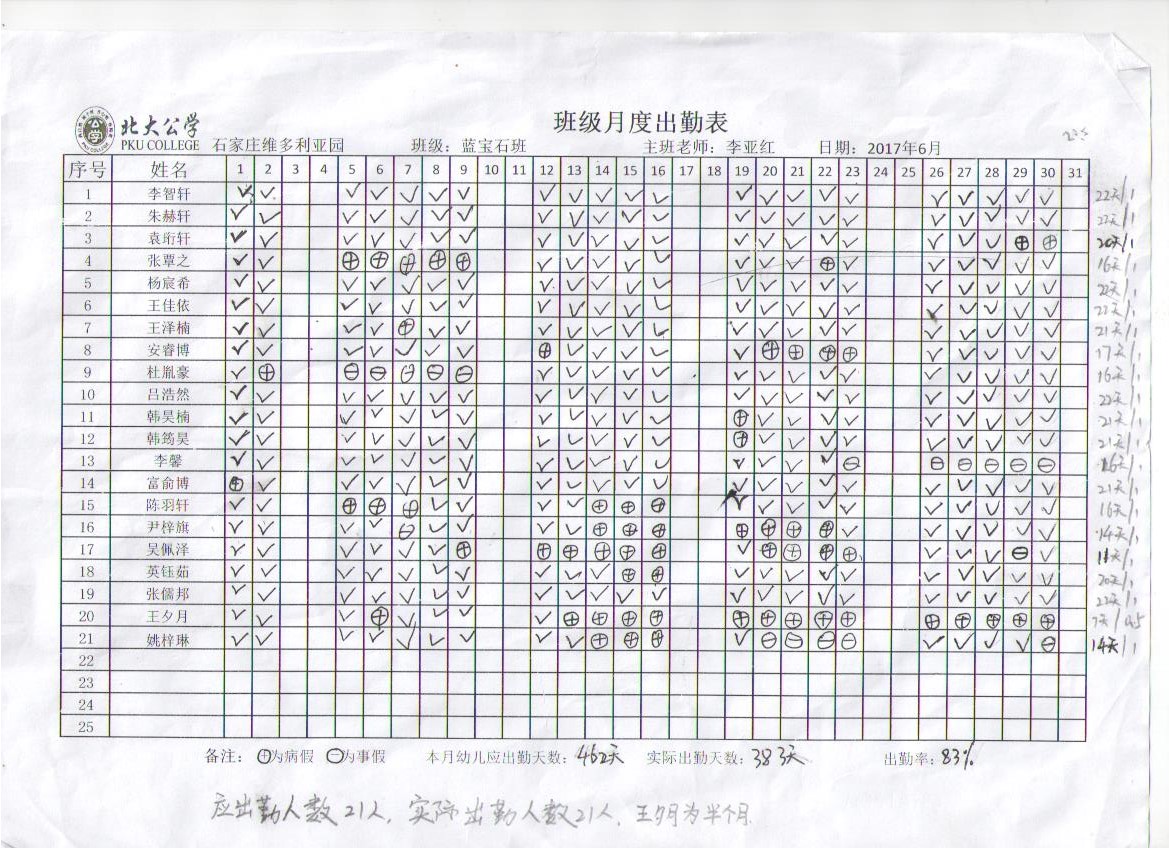 北大公学
PKU COLLEGE
班级月度出勤表
石家庄维多利亚园 班级：蓝宝石班 主班老师：李亚红 日期：2017年6月
序号 姓名 1 2 3 4 5 6 7 8 9 10 11 12 13 14 15 16 17 18 19 20 21 22 23 24 25 26 27 28 29 30 31
1 李智轩 22天/1
2 朱赫轩 22天/1
3 袁珩轩 20天/1
4 张覃之 16天/1
5 杨宸希 22天/1
6 王佳依 22天/1
7 王泽楠 21天/1
8 安睿博 17天/1
9 杜胤豪 16天/1
10 吕浩然 22天/1
11 韩昊楠 21天/1
12 韩筠昊 21天/1
13 李馨 16天/1
14 富俞博 21天/1
15 陈羽轩 16天/1
16 尹梓旗 14天/1
17 吴佩泽 11天/1
18 英钰茹 20天/1
19 张儒邦 22天/1
20 王夕月 7天/0.5
21 姚梓琳 14天/1
22
23
24
25
备注：⊕为病假 ⊖为事假 本月幼儿应出勤天数：462天 实际出勤天数：383天 出勤率：83%
应出勤人数21人，实际出勤人数21人，王夕月为半个月